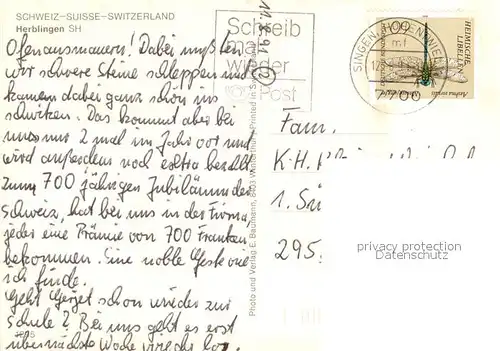 SCHWEIZ-SUISSE-SWITZERLAND
Herblingen SH
Ofenausmauern! Dabei mußten
wir schwere Steine schleppen und
kamen dabei ganz schön ins
schwitzen. Das kommt aber bei
uns nur 2 mal im Jahr vor und
wird außerdem noch extra bezahlt
zum 700 jährigen Jubiläum der
Schweiz, hat bei uns in der Firma
jeder eine Prämie von 700 Franken
bekommen. Eine noble Geste wie
ich finde.
Geht schon wieder zur
Schule? Bei uns geht es erst
übernächste Woche wieder los.
Photo und Verlag E. Baumann, 8403 Winterthur Printed in
11.8.91
Schreib
mal
wieder
Post
SINGEN (HOHENTWIEL)
7700
100
HEIMISCHE
LIBELLEN
Fam.
K.H.
1.
295
privacy protection
Datenschutz